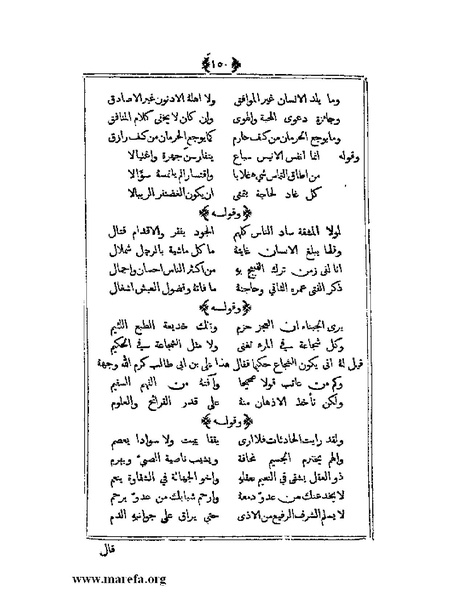 ﴿١٥٠﴾
وما بلد الانسان غير الموافق ولا اهله الادنون غير الاصادق
وجائزة دعوى المحبة والهوى وان كان لا يخفى كلام المنافق
وما يوجع الحرمان من كف حارم كما يوجع الحرمان من كف رازق
وقوله انما أنفس الانيس سباع يتفارسن جهرة واغتيالا
من اطاق التماس شيء غلابا واقتسارا لم يلتمسه سؤالا
كل غاد لحاجة يتمنى ان يكون الغضنفر الريبالا
﴿وقوله﴾
لولا المشقة ساد الناس كلهم الجود يفقر والاقدام قتال
وقلما يبلغ الانسان غايته ما كل ماشية بالرحل شملال
انا لفي زمن ترك القبيح به من اكثر الناس احسان واجمال
ذكر الفتى عمره الثاني وحاجته ما فاته وفضول العيش اشغال
﴿وقوله﴾
يرى الجبناء ان العجز حزم وتلك خديعة الطبع اللئيم
وكل شجاعة في المرء تغني ولا مثل الشجاعة في الحكيم
قيل له انى يكون الشجاع حكيما فقال هذا علي بن ابي طالب كرم الله وجهه
وكم من عائب قولا صحيحا وآفته من الفهم السقيم
ولكن تأخذ الاذهان منه على قدر القرائح والعلوم
﴿وقوله﴾
ولقد رايت الحادثات فلا ارى يققا يميت ولا سوادا يعصم
والهم يخترم الجسيم نحافة ويشيب ناصية الصبي ويهرم
ذو العقل يشقى في النعيم بعقله واخو الجهالة في الشقاوة ينعم
لا يخدعنك من عدو دمعة وارحم شبابك من عدو يرحم
لا يسلم الشرف الرفيع من الاذى حتى يراق على جوانبه الدم
قال
www.marefa.org